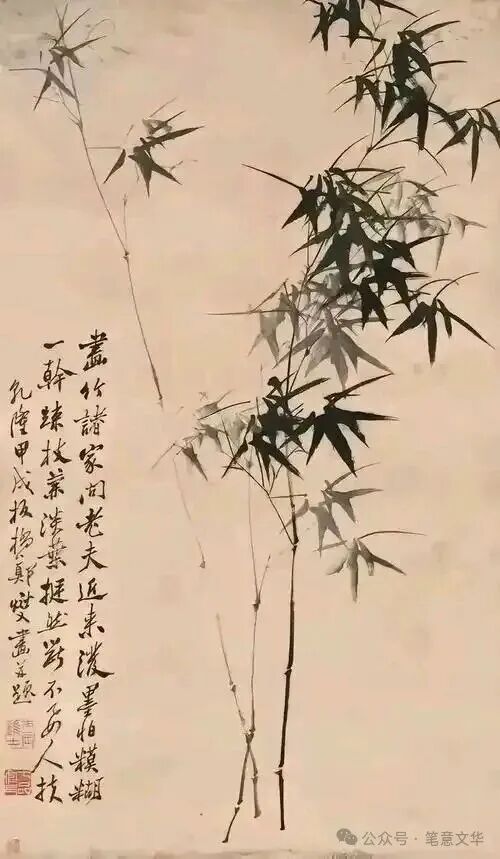 畫竹諸家問老夫近来潑墨怕糢糊
一幹疎枝兼淡葉挺然斷不要人扶
乾隆甲戌板橋鄭燮畫并題
公众号 · 笔意文华